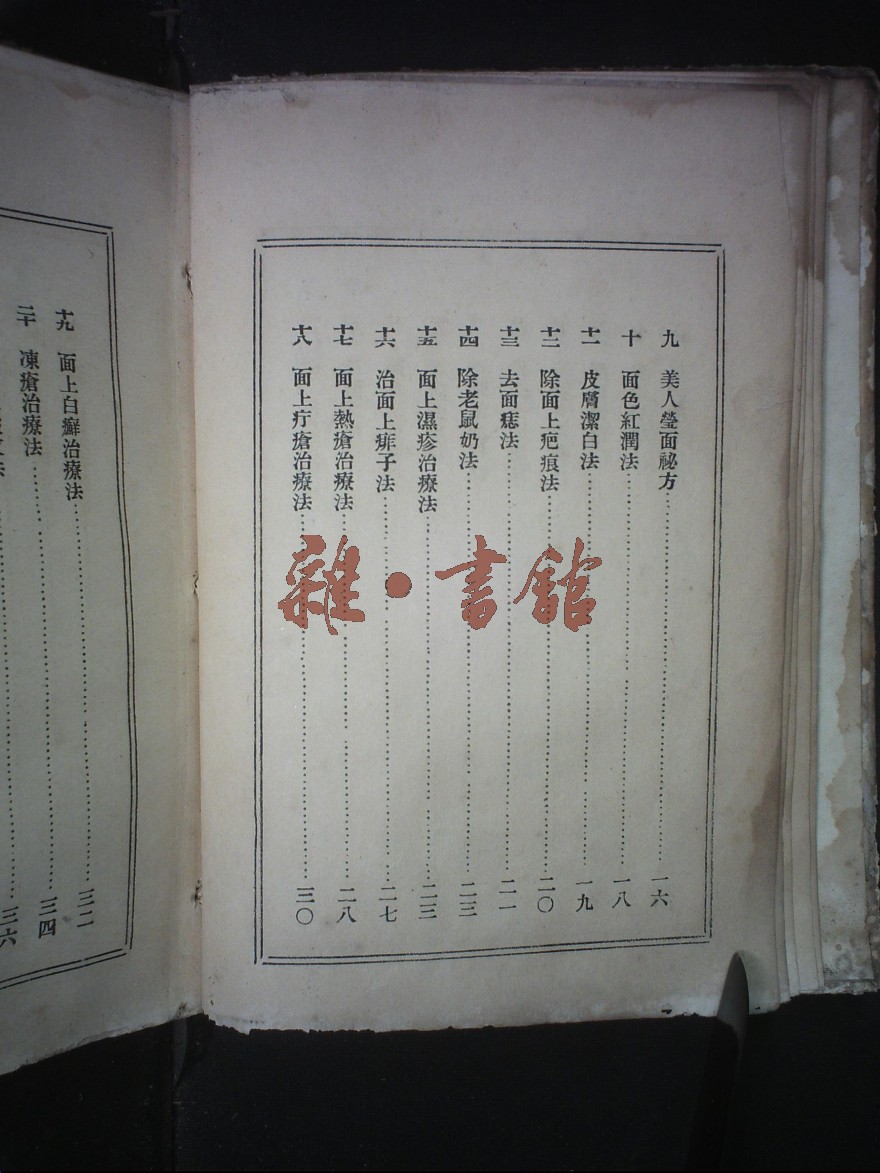 九　美人瑩面祕方……一六
十　面色紅潤法……一八
十一　皮膚潔白法……一九
十二　除面上疤痕法……二〇
十三　去面痣法……二一
十四　除老鼠奶法……二三
十五　面上濕疹治療法……二三
十六　治面上痱子法……二七
十七　面上熱瘡治療法……二八
十八　面上疔瘡治療法……三〇
十九　面上白癬治療法……三二
二十　凍瘡治療法……三四
法……三六
雜·書館